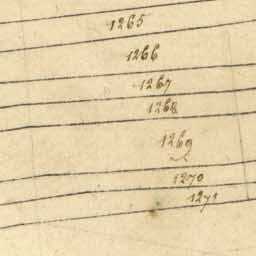 1265
1266
1267
1268
1269
1270
1271